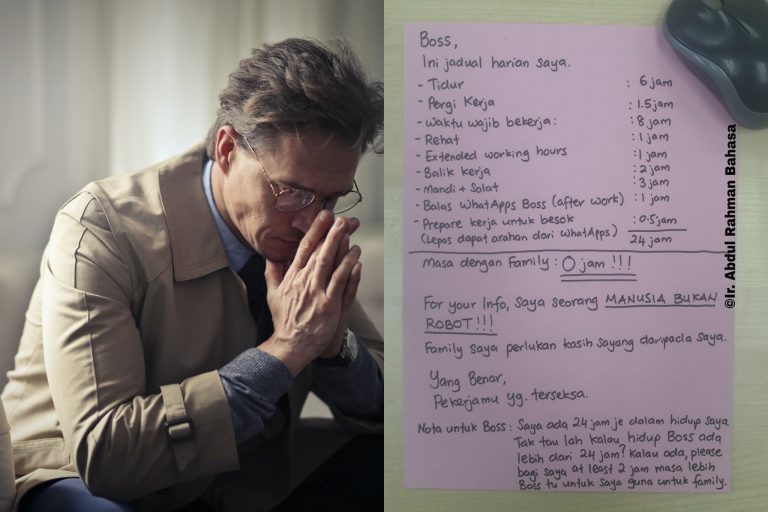 Boss,
Ini jadual harian saya.
- Tidur : 6 jam
- Pergi Kerja : 1.5 jam
- Waktu wajib bekerja : : 8 jam
- Rehat : 1 jam
- Extended working hours : 1 jam
- Balik kerja : 2 jam
- Mandi + Solat : 3 jam
- Balas WhatApps Boss (after work) : 1 jam
- Prepare kerja untuk besok : 0.5 jam
(Lepas dapat arahan dari WhatApps) 24 jam
Masa dengan Family : 0 jam !!!
For your Info, saya seorang MANUSIA BUKAN
ROBOT!!!
Family saya perlukan kasih sayang daripada saya.
Yang Benar,
Pekerjamu yg. terseksa.
Nota untuk Boss : Saya ada 24 jam je dalam hidup saya
Tak tau lah kalau hidup Boss ada
lebih dari 24 jam? Kalau ada, please
bagi saya at least 2 jam masa lebih
Boss tu untuk saya guna untuk family.
©Ir. Abdul Rahman Bahasa